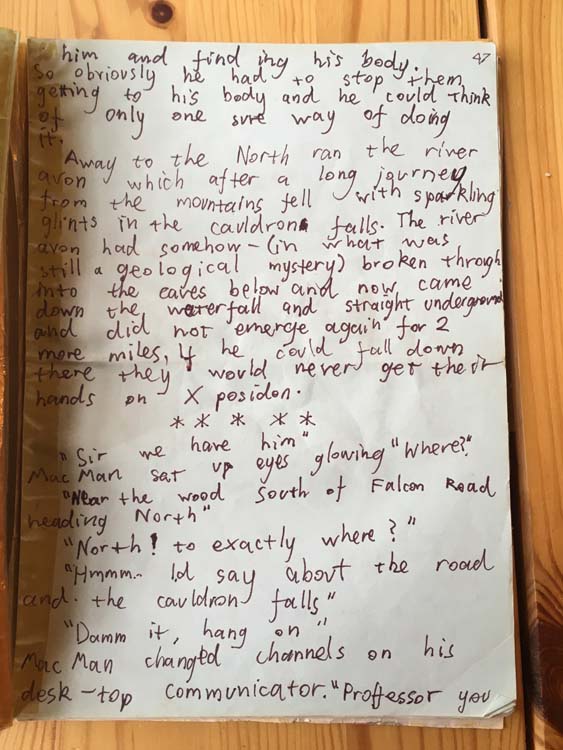 47
him and finding his body.
So obviously he had to stop them
getting to his body and he could think
of only one sure way of doing
it.
Away to the North ran the river
avon which after a long journey
from the mountains fell with sparkling
glints in the cauldron falls. The river
avon had somehow – (in what was
still a geological mystery) broken through
into the eaves below and now came
down the waterfall and straight underground
and did not emerge again for 2
more miles, If he could fall down
there they would never get their
hands on X posidon.
* * * * *
"Sir we have him" "Where?"
Mac Man sat up eyes glowing
"Near the wood South of Falcon Road
heading North"
"North! to exactly where?"
"Hmmm.. Id say about the road
and. the cauldron falls"
"Damm it, hang on"
Mac Man changed channels on his
desk-top communicator. "Proffessor you